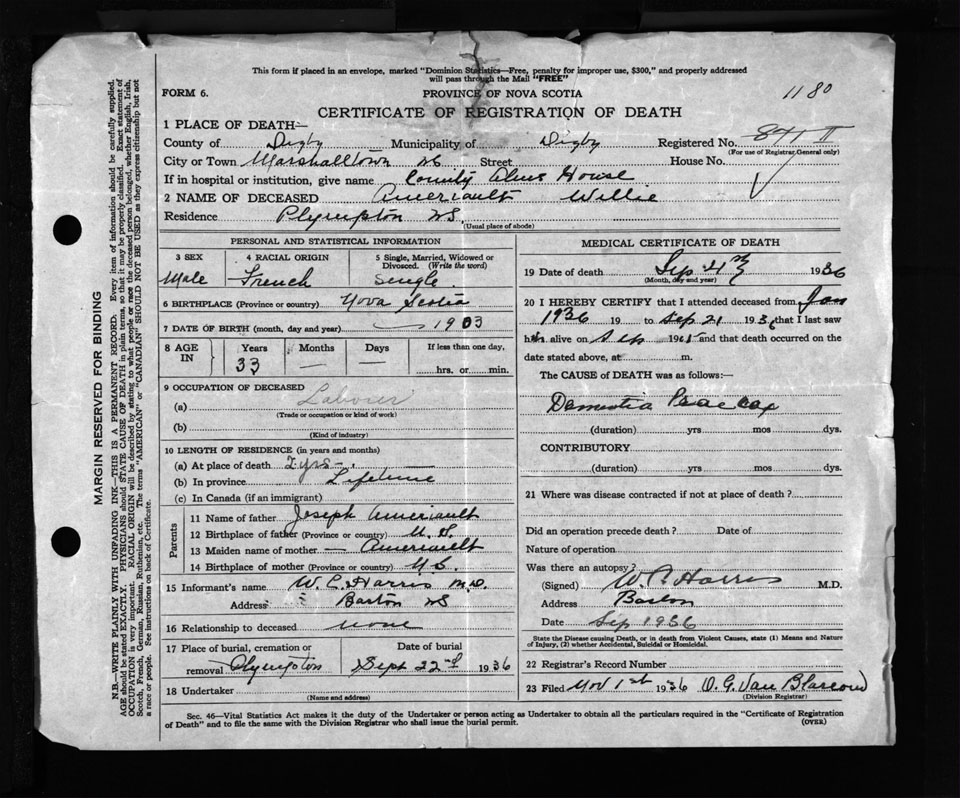 This form if placed in an envelope, marked "Dominion Statistics—Free, penalty for improper use, $300," and properly addressed
will pass through the Mail "FREE"
FORM 6.
PROVINCE OF NOVA SCOTIA
1180
CERTIFICATE OF REGISTRATION OF DEATH
1 PLACE OF DEATH—
County of Digby Municipality of Digby Registered No. 841
(For use of Registrar General only)
City or Town Marshalltown NS Street House No.
If in hospital or institution, give name County Alms House
2 NAME OF DECEASED Ameriault Willie
Residence Plympton NS.
(Usual place of abode)
PERSONAL AND STATISTICAL INFORMATION
3 SEX 4 RACIAL ORIGIN 5 Single, Married, Widowed or
Divorced. (Write the word)
Male French Single
6 BIRTHPLACE (Province or country) Nova Scotia
7 DATE OF BIRTH (month, day and year) — 1903
8 AGE IN Years Months Days If less than one day,
33 — hrs. or min.
9 OCCUPATION OF DECEASED
(a) Laborer
(Trade or occupation or kind of work)
(b)
(Kind of industry)
10 LENGTH OF RESIDENCE (in years and months)
(a) At place of death 2 yrs
(b) In province Lifetime
(c) In Canada (if an immigrant)
Parents
11 Name of father Joseph Ameriault
12 Birthplace of father (Province or country) N.S.
13 Maiden name of mother — Ameriault
14 Birthplace of mother (Province or country) N.S.
15 Informant's name W. E. Harris M.D.
Address Barton NS
16 Relationship to deceased none
17 Place of burial, cremation or Date of burial
removal Plympton Sept 22nd 1936
18 Undertaker
(Name and address)
MEDICAL CERTIFICATE OF DEATH
19 Date of death Sep 1936
(Month, day and year)
20 I HEREBY CERTIFY that I attended deceased from Jan
1936 19 to Sep 21 1936 that I last saw
him alive on Sep 19 and that death occurred on the
date stated above, at m.
The CAUSE of DEATH was as follows:—
Dementia
(duration) yrs mos dys.
CONTRIBUTORY
(duration) yrs mos dys.
21 Where was disease contracted if not at place of death?
Did an operation precede death? Date of
Nature of operation
Was there an autopsy?
(Signed) W. E. Harris M.D.
Address Barton
Date Sep 1936
State the Disease causing Death, or in death from Violent Causes, state (1) Means and Nature
of Injury, (2) whether Accidental, Suicidal or Homicidal.
22 Registrar's Record Number
23 Filed Nov 1st 1936 O. G. Van Blarcom
(Division Registrar)
Sec. 46—Vital Statistics Act makes it the duty of the Undertaker or person acting as Undertaker to obtain all the particulars required in the "Certificate of Registration
of Death" and to file the same with the Division Registrar who shall issue the burial permit.
(OVER)
MARGIN RESERVED FOR BINDING
N.B.—WRITE PLAINLY WITH UNFADING INK—THIS IS A PERMANENT RECORD. Every item of information should be carefully supplied.
AGE should be stated EXACTLY. PHYSICIANS should STATE CAUSE OF DEATH in plain terms, so that it may be properly classified. Exact statement of
OCCUPATION is very important. RACIAL ORIGIN will be described by stating to what people or race the deceased person belonged, whether English, Irish,
Scotch, French, German, Russian, Ruthenian, etc. The terms "AMERICAN" or "CANADIAN" SHOULD NOT BE USED as they express citizenship but not
a race or people. See instructions on back of Certificate.